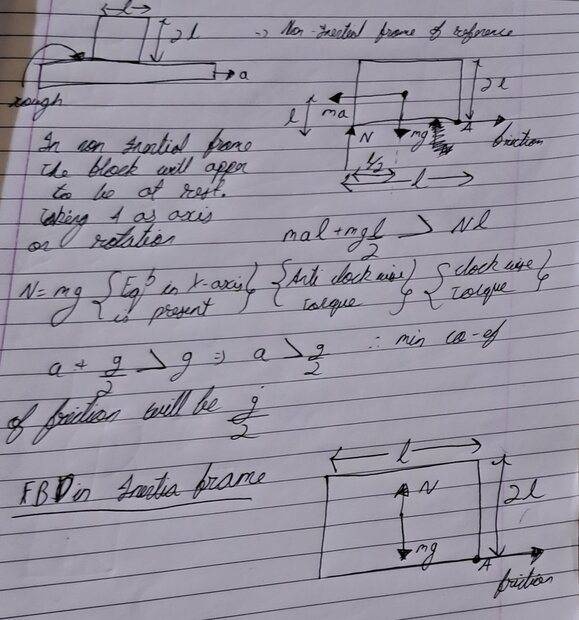 l
2l
→ a
rough
→ Non-Inertial frame of reference
2l
l
ma
N
mg
A
friction
l/2
l
In non Inertial frame
the block will apper
to be at rest.
Taking A as axis
or rotation
mal + mgl/2 > Nl
N = mg { Eqb in Y-axis is present } { Anti clock wise torque } { clock wise torque }
a + g/2 > g ⇒ a > g/2 ∴ min co-ef
of friction will be g/2
FBD in Inertia frame
l
N
2l
mg
A
friction